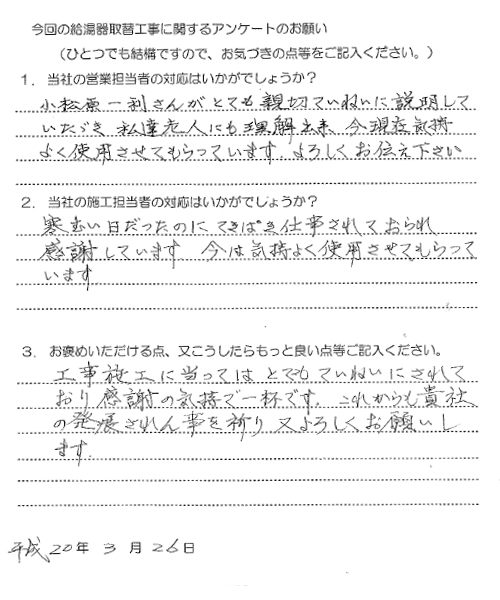 今回の給湯器取替工事に関するアンケートのお願い
（ひとつでも結構ですので、お気づきの点等をご記入ください。）
1．当社の営業担当者の対応はいかがでしょうか？
小松原一利さんがとても親切ていねいに説明して
いただき 私達老人にも理解出来、今現在気持
よく使用させてもらっています。よろしくお伝え下さい
2．当社の施工担当者の対応はいかがでしょうか？
寒い日だったのに てきぱき仕事されておられ
感謝しています 今は気持よく使用させてもらって
います
3．お褒めいただける点、又こうしたらもっと良い点等ご記入ください。
工事施工に当っては とてもていねいにされて
おり感謝の気持で一杯です。これからも貴社
の発展されん事を祈り 又よろしくお願いし
ます。
平成20年 3月26日